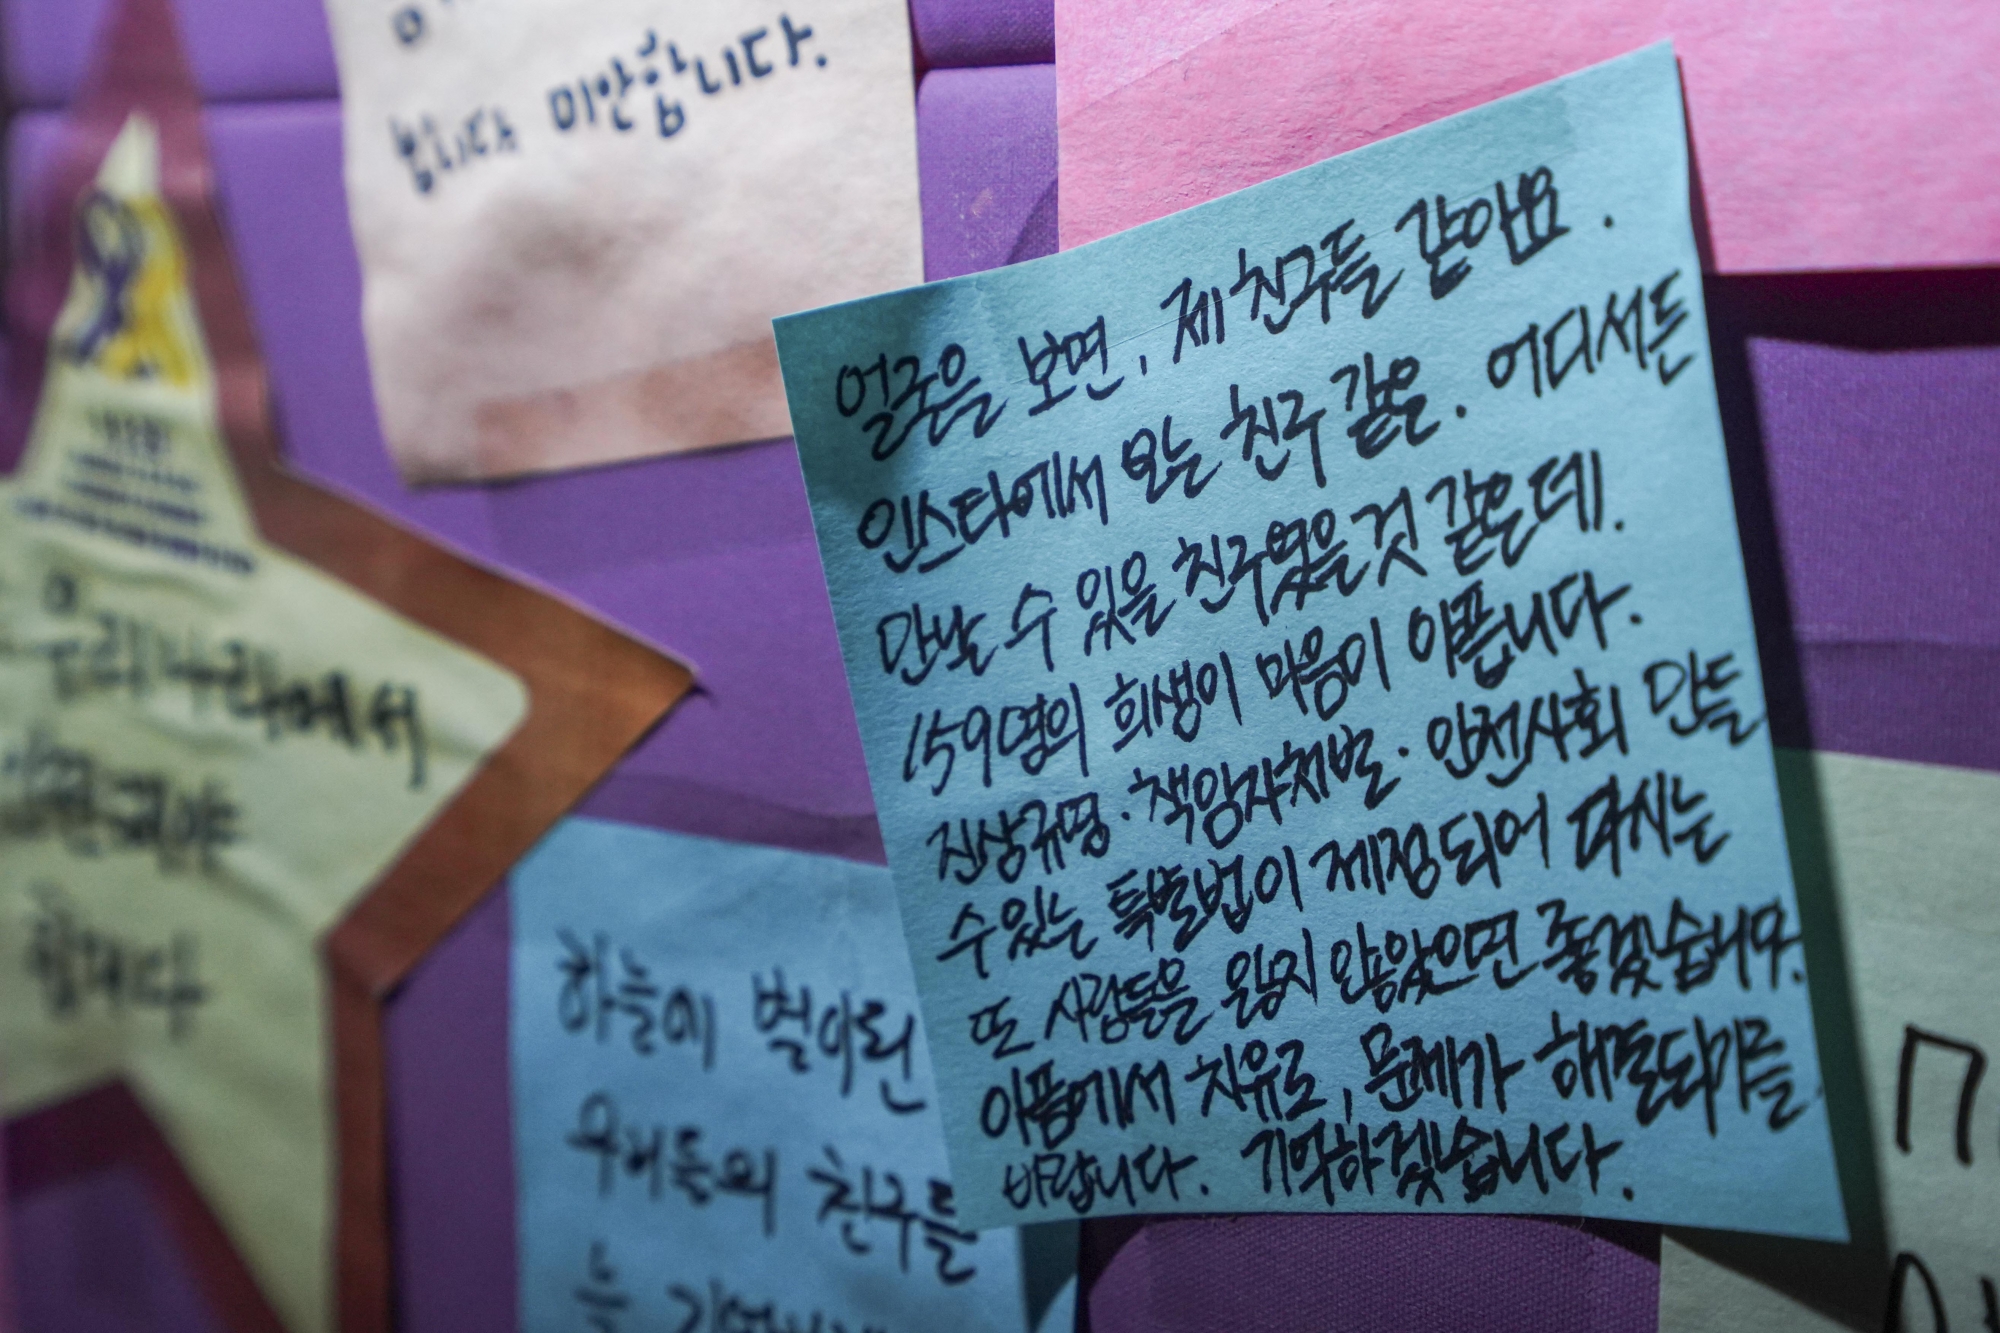 봅니다 미안합니다.
얼굴을 보면, 제 친구들 같아요.
인스타에서 보는 친구 같은. 어디서든
만날 수 있을 친구였을 것 같은데.
159명의 희생이 마음이 아픕니다.
진상규명·책임자처벌·안전사회 만들
수 있는 특별법이 제정되어 다시는
또 사람들을 잃지 않았으면 좋겠습니다.
아픔에서 치유로, 문제가 해결되기를
바랍니다. 기억하겠습니다.
우리나라에서
하늘에 별이 된
우리들의 친구들